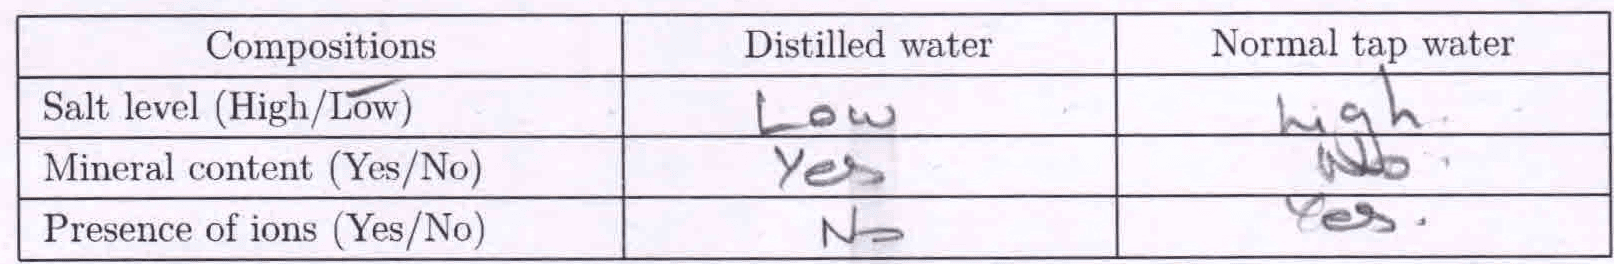 Compositions Distilled water Normal tap water
Salt level (High/Low) Low high.
Mineral content (Yes/No) Yes No.
Presence of ions (Yes/No) No Yes.